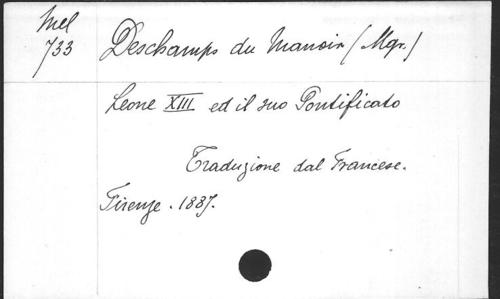 Mel
733
Deschamps du Manoir (Mgr.)
Leone XIII ed il suo Pontificato
Traduzione dal Francese.
Firenze. 1887.